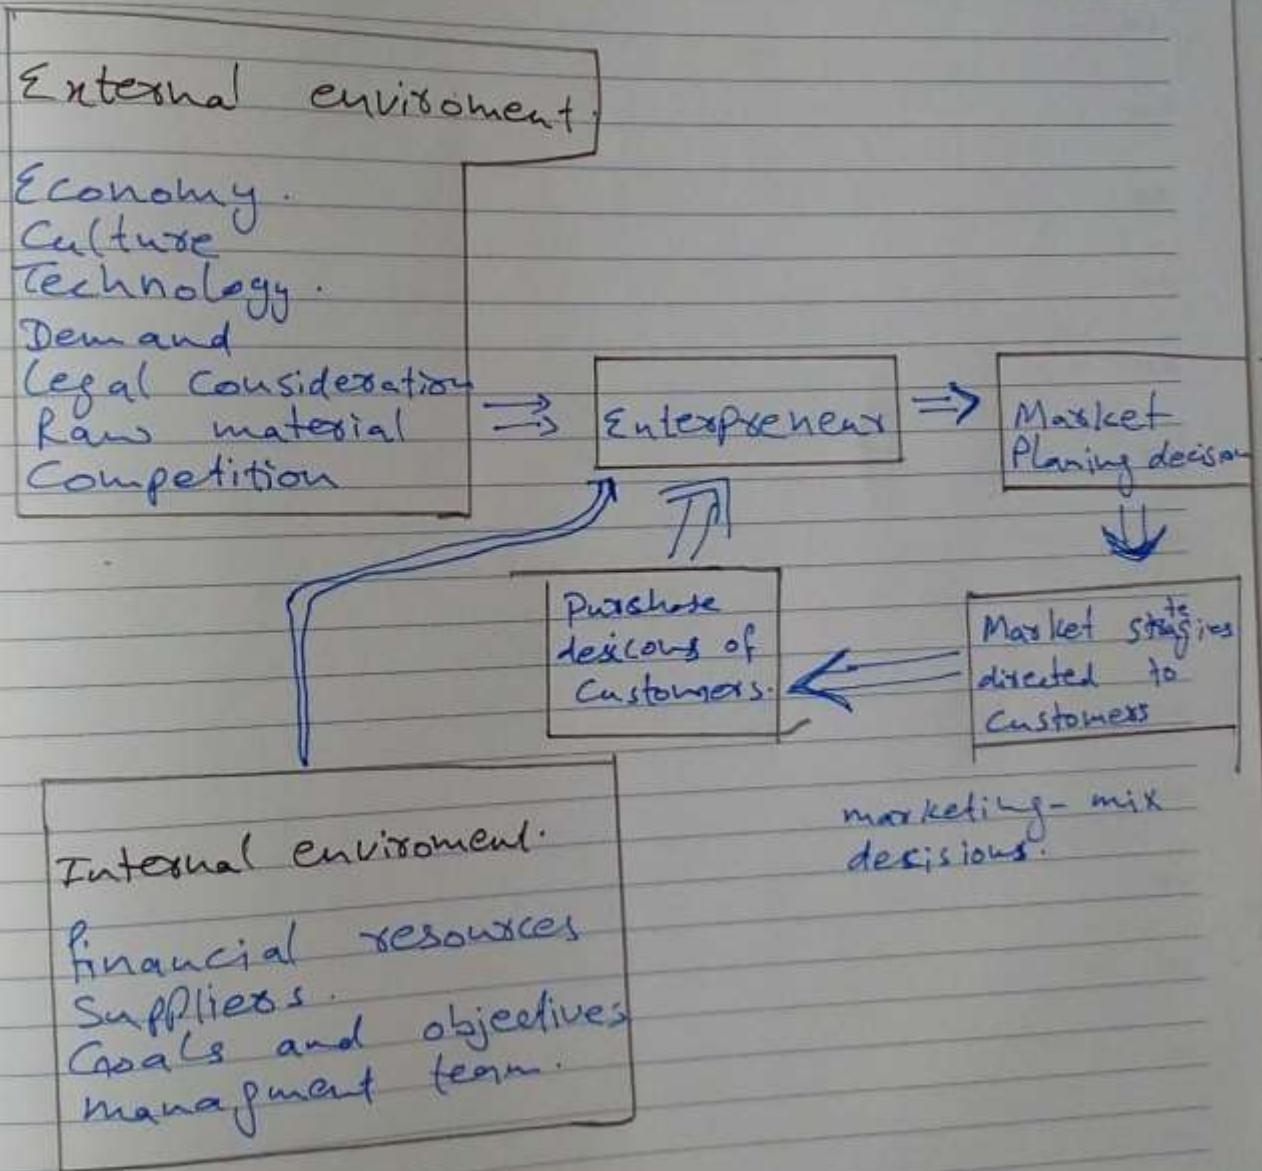 External enviroment.
Economy.
Culture
Technology.
Demand
Legal Consideration
Raw material
Competition
Enterpreneur
Market
Planing decison
Purshase
desicons of
Customers.
Market strategies
directed to
Customers
marketing-mix
decisions.
Internal enviroment.
financial resources
Suppliers.
Goals and objectives
managment team.